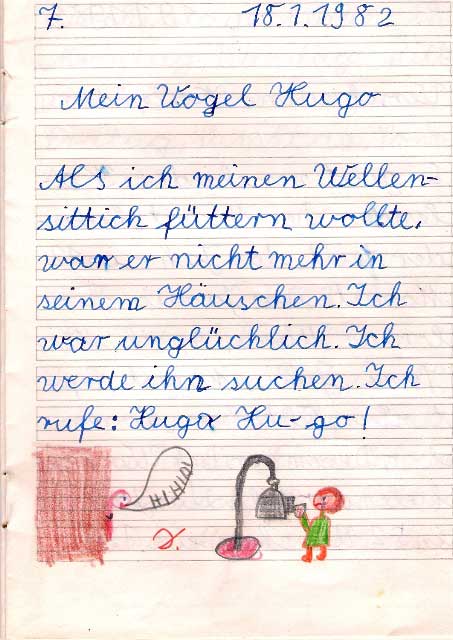 7. 18.1.1982
Mein Vogel Hugo
Als ich meinen Wellen-
sittich füttern wollte,
war er nicht mehr in
seinem Häuschen. Ich
war unglücklich. Ich
werde ihn suchen. Ich
rufe: Hugo Hu-go!
HIHIHI